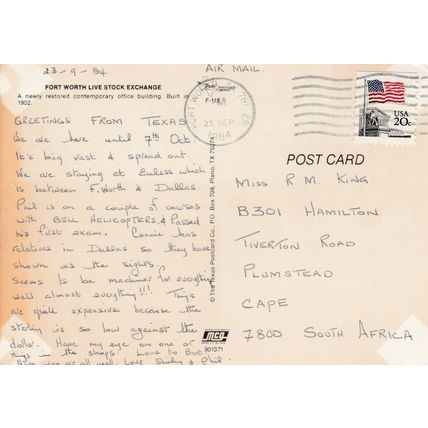 23-9-84
AIR MAIL.
FORT WORTH LIVE STOCK EXCHANGE
A newly restored contemporary office building. Built in
1902.
GREETINGS FROM TEXAS
We are here until 7th Oct.
It's big vast & spread out.
We are staying at Euless which
is between F. Worth & Dallas.
Phil is on a couple of courses
with BELL HELICOPTERS & Passed
his first exam. Connie has
relatives in Dallas so they have
shown us the sights.
Seems to be machines for everything
well almost everything!!! Things
are quite expensive because the
sterling is so low against the
dollar. Have my eye on one or
things in the shops. Love to
you are all well. Love & Phil
© The Texas Postcard Co., P.O. Box 708, Plano, TX 75074
F-118
FORT WORTH
25 SEP
1984
USA
20c
POST CARD
MISS R. M. KING.
B301 HAMILTON
TIVERTON ROAD
PLUMSTEAD
CAPE
7800 SOUTH AFRICA
901371